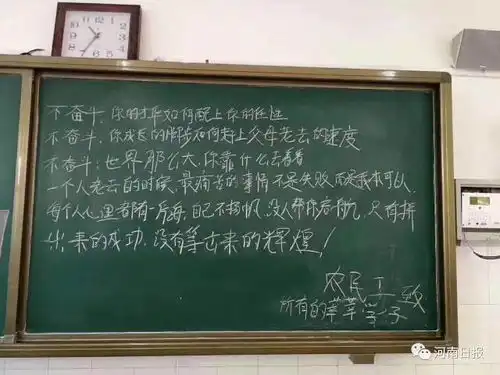 不奋斗，你的才华如何配上你的任性
不奋斗，你成长的脚步如何赶上父母老去的速度
不奋斗，世界那么大，你靠什么去看看
一个人老去的时候，最痛苦的事情不是失败，而是我本可以，
每个人心里都有一片海，自己不扬帆，没人帮你启航，只有拼
出来的成功，没有等出来的辉煌！
农民工致
所有的莘莘学子
河南日报